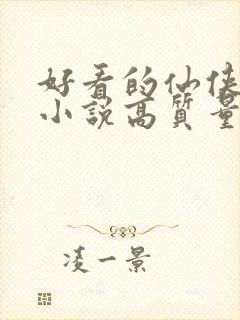 好看的仙侠
小说高质量
凌一景